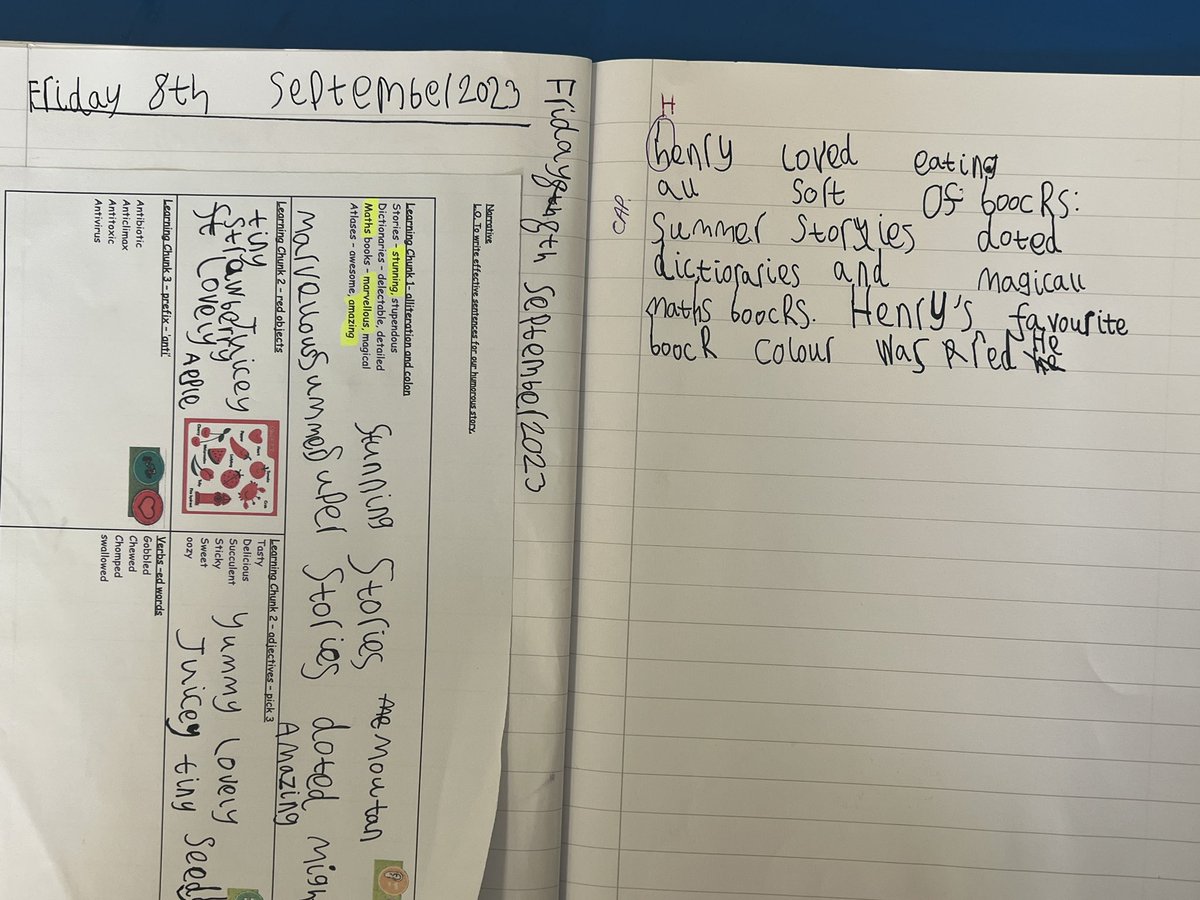 Friday 8th September 2023
Friday 8th September 2023
Narrative
L.O. To write effective sentences for our humorous story.
Learning Chunk 1- alliteration and colon
Stories – stunning, stupendous
Dictionaries – delectable, detailed
Maths books – marvellous, magical
Atlases – awesome, amazing
Stunning Stories moutan
marvellous summer Super Stories doted
Amazing
Learning Chunk 2 – red objects
tiny Juicey
Strawberry
Lovely Apple
Learning Chunk 2 – adjectives – pick 3
Tasty
Delicious
Succulent
Sticky
Sweet
oozy
Yummy Lovely
Juicey tiny Seed
Learning Chunk 3 – prefix – 'anti'
Antibiotic
Anticlimax
Antitoxic
Antivirus
Verbs -ed words
Gobbled
Chewed
Chomped
swallowed
H
henry loved eating
all soft ofboocks:
Summer Storyies doted
dictioraries and magicall
maths boocks. Henry's favourite
boock colour was red He